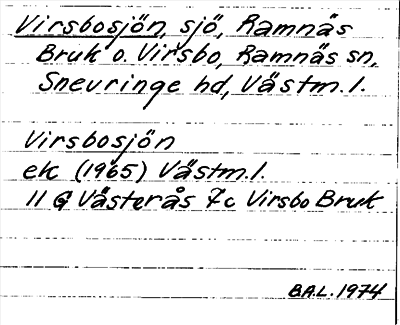 Virsbosjön, sjö, Ramnäs
Bruk o. Virsbo, Ramnäs sn,
Snevringe hd, Västm.l.
Virsbosjön
ek (1965) Västm.l.
11 G Västerås 7c Virsbo Bruk
B.A.L. 1974